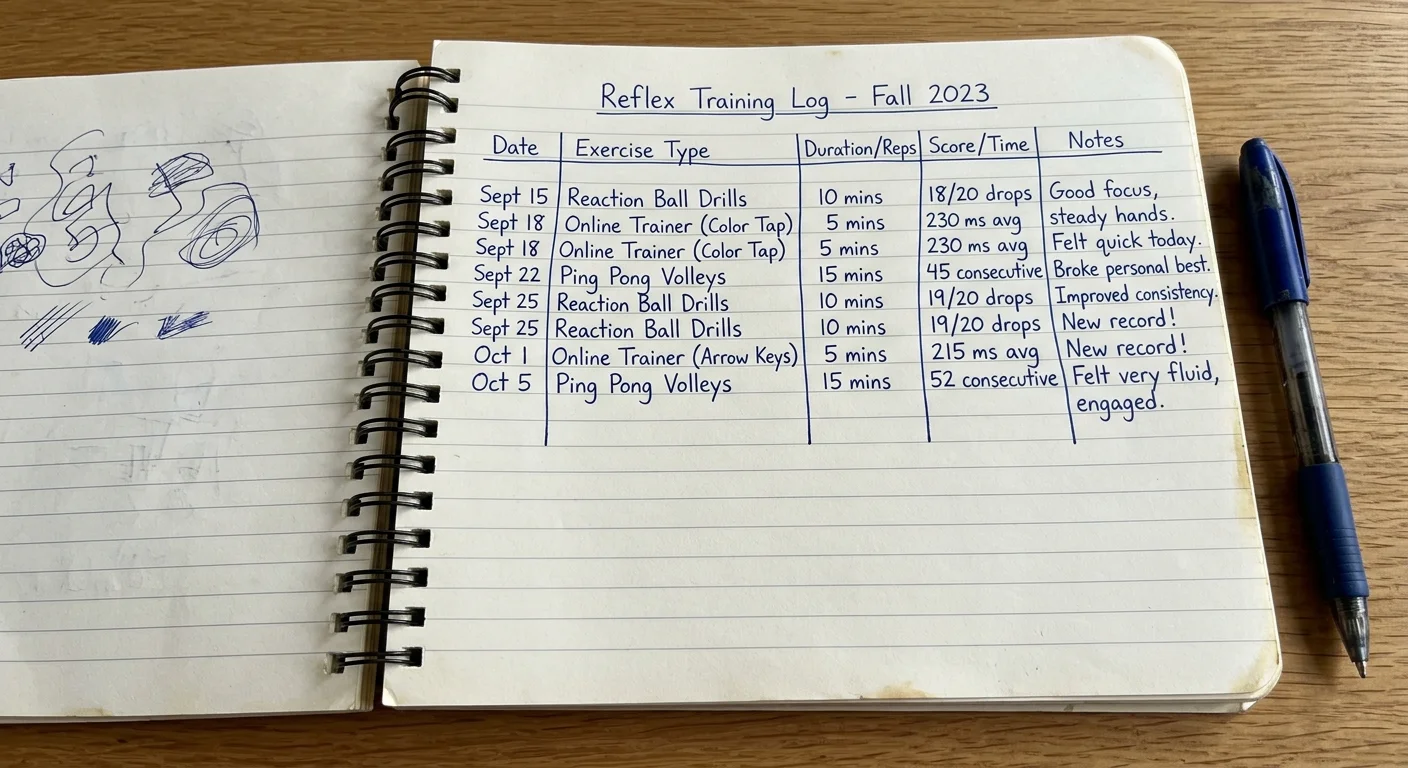 Reflex Training Log - Fall 2023
Date Exercise Type Duration/Reps Score/Time Notes
Sept 15 Reaction Ball Drills 10 mins 18/20 drops Good focus,
Sept 18 Online Trainer (Color Tap) 5 mins 230 ms avg steady hands.
Sept 18 Online Trainer (Color Tap) 5 mins 230 ms avg Felt quick today.
Sept 22 Ping Pong Volleys 15 mins 45 consecutive Broke personal best.
Sept 25 Reaction Ball Drills 10 mins 19/20 drops Improved consistency.
Sept 25 Reaction Ball Drills 10 mins 19/20 drops New record!
Oct 1 Online Trainer (Arrow Keys) 5 mins 215 ms avg New record!
Oct 5 Ping Pong Volleys 15 mins 52 consecutive Felt very fluid,
engaged.